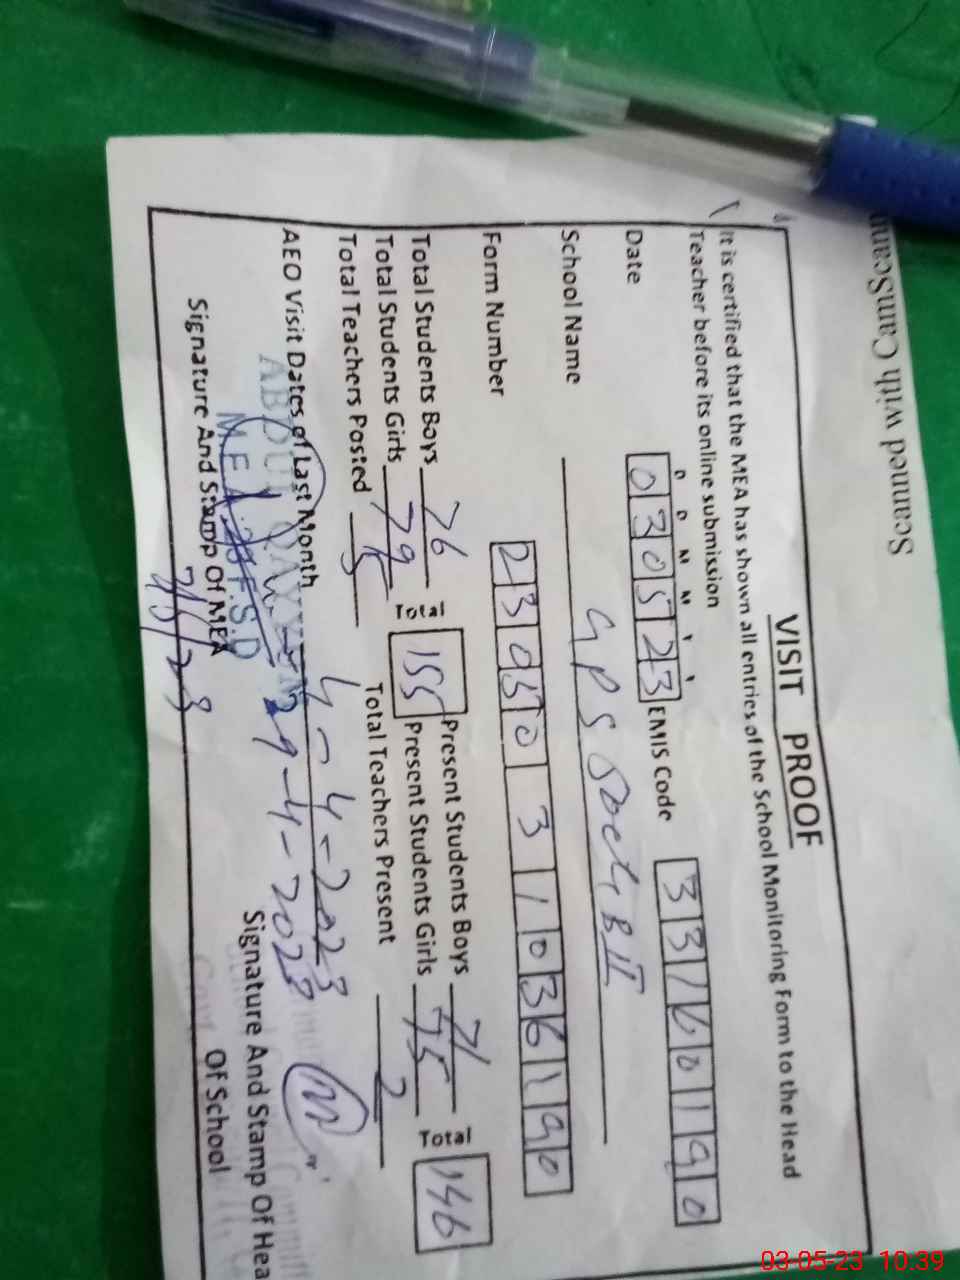 Scanned with CamScann
VISIT PROOF
It is certified that the MEA has shown all entries of the School Monitoring Form to the Head
Teacher before its online submission
D D M M Y Y
Date 030523 EMIS Code 33160190
School Name GPS
Form Number 23050311036190
Total Students Boys 76 Total 155 Present Students Boys 71 Total 146
Total Students Girls 79 Present Students Girls 75
Total Teachers Posted 5 Total Teachers Present 2
AEO Visit Dates of Last Month 4-4-2023
29-4-2023
ABDUL QAYYUM
M.E.A F.S.D
Signature And Stamp Of MEA
Signature And Stamp Of Hea
Of School
03-05-23 10:39